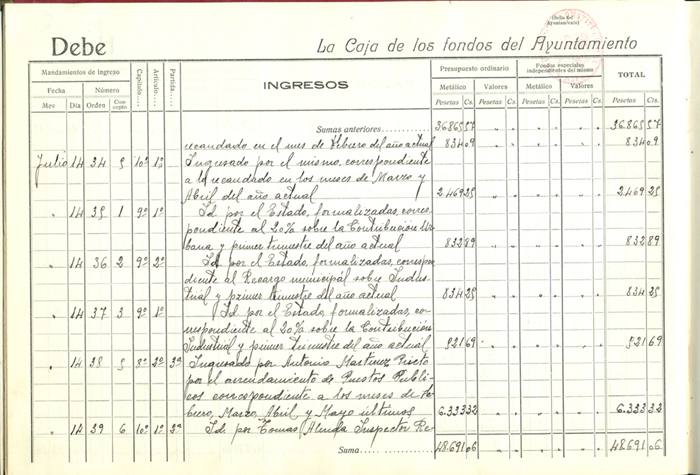 (Sello del Ayuntamiento)
Debe
La Caja de los fondos del Ayuntamiento
Mandamientos de ingreso
Fecha Número
Mes Día Orden Concepto
Capítulo Artículo Partida
INGRESOS
Presupuesto ordinario
Metálico Valores
Pesetas Cs. Pesetas Cs.
Fondos especiales independientes del mismo
Metálico Valores
Pesetas Cs. Pesetas Cs.
TOTAL
Pesetas Cts.
Sumas anteriores 36.865 57 36.865 57
recaudado en el mes de Febrero del año actual 834 09 834 09
Julio 14 34 5 10º 1º Ingresado por el mismo, correspondiente
a lo recaudado en los meses de Marzo y
Abril del año actual 2.469 25 2.469 25
" 14 35 1 9º 1º Id. por el Estado, formalizadas, corres-
pondiente al 20% sobre la Contribución Ur-
bana y primer trimestre del año actual 832 89 832 89
" 14 36 2 9º 2º Id. por el Estado, formalizadas, correspon-
diente al Recargo municipal sobre Indus-
trial y primer trimestre del año actual 834 25 834 25
" 14 37 3 9º 1º Id. por el Estado, formalizadas, co-
rrespondiente al 20% sobre la Contribución
Industrial y primer trimestre del año actual 521 69 521 69
" 14 38 5 8º 2º 3º Ingresado por Antonio Martinez Prieto
por el arrendamiento de Puestos Públi-
cos correspondiente a los meses de Fe-
brero, Marzo, Abril y Mayo últimos 6.333 32 6.333 32
" 14 39 6 10º 1º 2º Id. por Tomas Inspector Re-
Suma 48.691 06 48.691 06